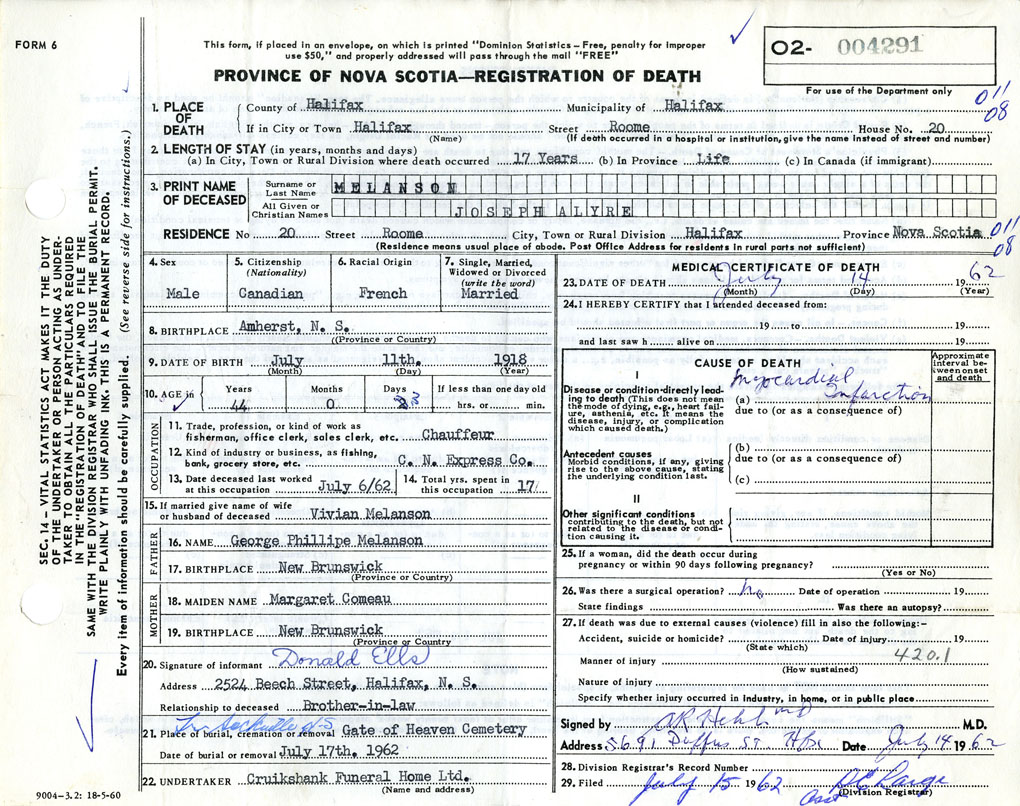 FORM 6
This form, if placed in an envelope, on which is printed "Dominion Statistics – Free, penalty for improper
use $50," and properly addressed will pass through the mail "FREE"
PROVINCE OF NOVA SCOTIA—REGISTRATION OF DEATH
02- 004291
For use of the Department only
011
08
SEC. 14 – VITAL STATISTICS ACT MAKES IT THE DUTY
OF THE UNDERTAKER OR PERSON ACTING AS UNDER-
TAKER TO OBTAIN ALL THE PARTICULARS REQUIRED
IN THE "REGISTRATION OF DEATH" AND TO FILE THE
SAME WITH THE DIVISION REGISTRAR WHO SHALL ISSUE THE BURIAL PERMIT.
WRITE PLAINLY WITH UNFADING INK. THIS IS A PERMANENT RECORD.
Every item of information should be carefully supplied. (See reverse side for instructions.)
1. PLACE OF DEATH County of Halifax Municipality of Halifax
If in City or Town Halifax Street Roome House No. 20
(Name) (If death occurred in a hospital or institution, give the name instead of street and number)
2. LENGTH OF STAY (in years, months and days)
(a) In City, Town or Rural Division where death occurred 17 Years (b) In Province Life (c) In Canada (if immigrant)
3. PRINT NAME OF DECEASED Surname or Last Name MELANSON
All Given or Christian Names JOSEPH ALYRE
RESIDENCE No 20 Street Roome City, Town or Rural Division Halifax Province Nova Scotia 011
08
(Residence means usual place of abode. Post Office Address for residents in rural parts not sufficient)
4. Sex Male
5. Citizenship (Nationality) Canadian
6. Racial Origin French
7. Single, Married, Widowed or Divorced (write the word) Married
8. BIRTHPLACE Amherst, N. S.
(Province or Country)
9. DATE OF BIRTH July 11th. 1918
(Month) (Day) (Year)
10. AGE in Years 44 Months 0 Days 3 If less than one day old hrs. or min.
OCCUPATION
11. Trade, profession, or kind of work as
fisherman, office clerk, sales clerk, etc. Chauffeur
12. Kind of industry or business, as fishing,
bank, grocery store, etc. C. N. Express Co.
13. Date deceased last worked at this occupation July 6/62 14. Total yrs. spent in this occupation 17
15. If married give name of wife
or husband of deceased Vivian Melanson
FATHER
16. NAME George Phillipe Melanson
17. BIRTHPLACE New Brunswick
(Province or Country)
MOTHER
18. MAIDEN NAME Margaret Comeau
19. BIRTHPLACE New Brunswick
(Province or Country
20. Signature of informant Donald Ells
Address 2524 Beech Street, Halifax, N. S.
Relationship to deceased Brother-in-law
21. Place of burial, cremation or removal Gate of Heaven Cemetery
Date of burial or removal July 17th. 1962
22. UNDERTAKER Cruikshank Funeral Home Ltd.
(Name and address)
9004-3.2: 18-5-60
MEDICAL CERTIFICATE OF DEATH
23. DATE OF DEATH July 14 1962
(Month) (Day) (Year)
24. I HEREBY CERTIFY that I attended deceased from:
19 to 19
and last saw h alive on 19
CAUSE OF DEATH
Approximate interval between onset and death
I
Disease or condition directly lead-
ing to death (This does not mean
the mode of dying, e.g., heart fail-
ure, asthenia, etc. It means the
disease, injury, or complication
which caused death.)
(a) Myocardial Infarction
due to (or as a consequence of)
Antecedent causes
Morbid conditions, if any, giving
rise to the above cause, stating
the underlying condition last.
(b)
due to (or as a consequence of)
(c)
II
Other significant conditions
contributing to the death, but not
related to the disease or condi-
tion causing it.
25. If a woman, did the death occur during
pregnancy or within 90 days following pregnancy?
(Yes or No)
26. Was there a surgical operation? no Date of operation 19
State findings Was there an autopsy?
27. If death was due to external causes (violence) fill in also the following:-
Accident, suicide or homicide? Date of injury 19
(State which)
420.1
Manner of injury
(How sustained)
Nature of injury
Specify whether injury occurred in Industry, in home, or in public place
Signed by MD M.D.
Address 5691 Duffus St Hfx Date July 14 1962
28. Division Registrar's Record Number
29. Filed July 15 1962
(Division Registrar)